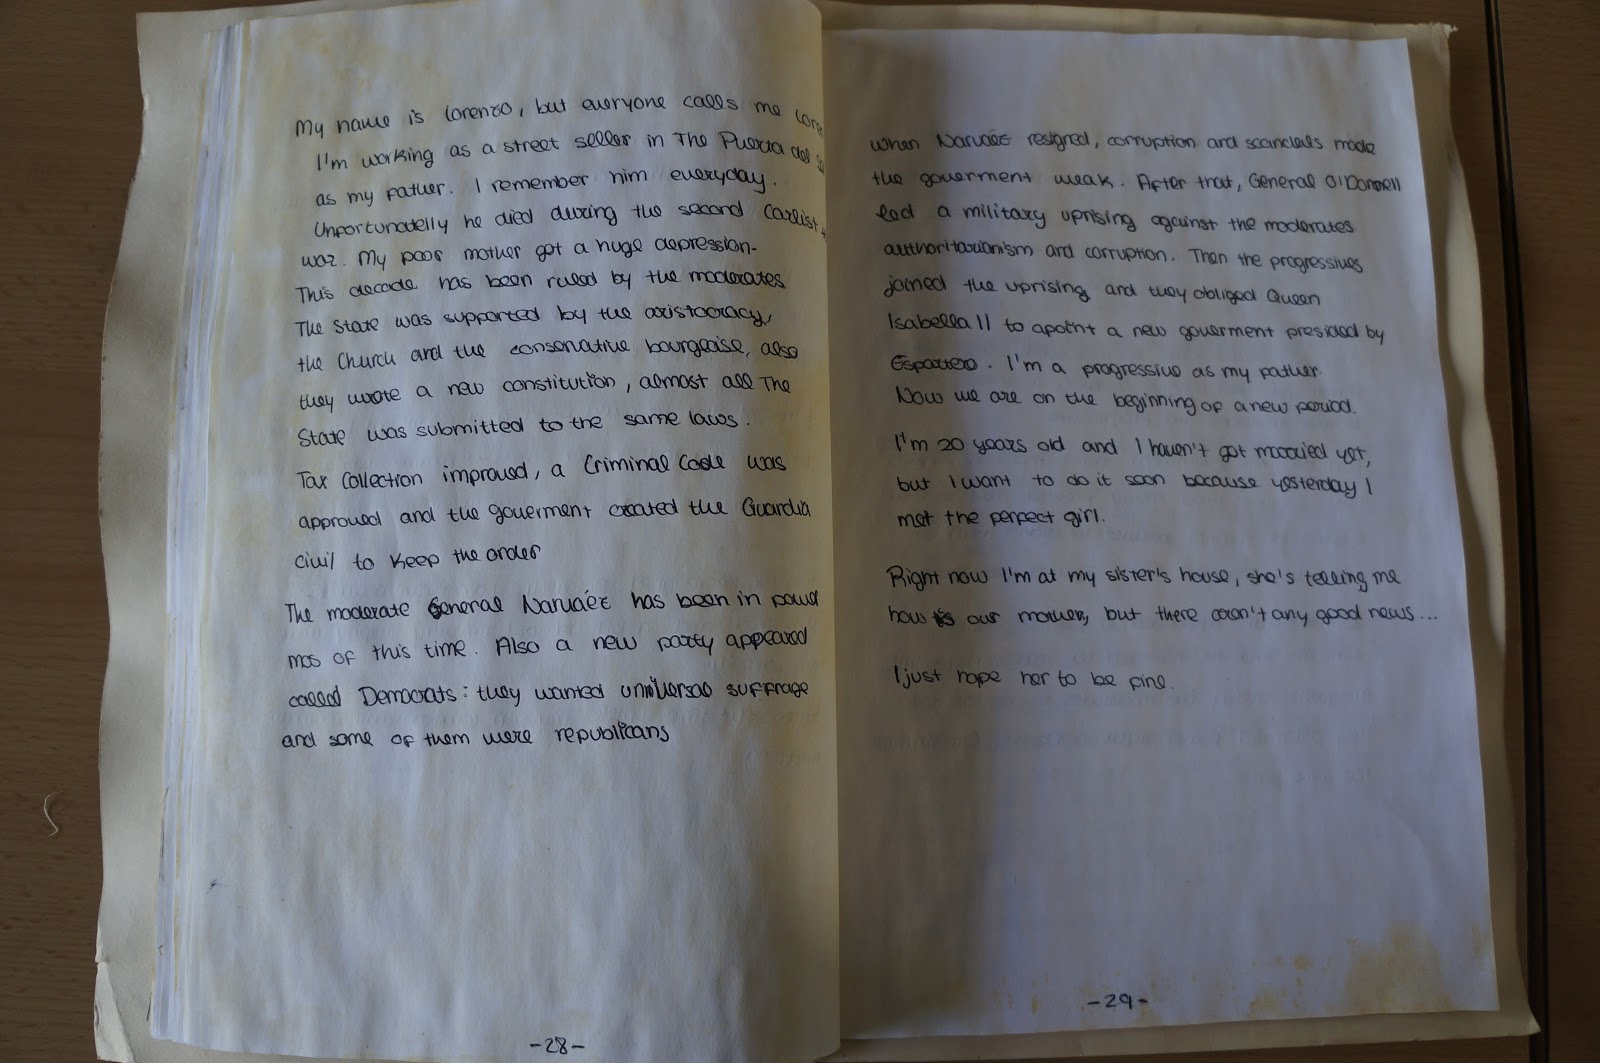 My name is Lorenzo, but everyone calls me
I'm working as a street seller in The Puerta del
as my father. I remember him everyday.
Unfortunatelly he died during the second Carlist
war. My poor mother got a huge depression.
This decade has been ruled by the moderates
The State was supported by the aristocracy,
the Church and the conservative bourgeoise, also
they wrote a new constitution, almost all The
State was submitted to the same laws.
Tax Collection improved, a Criminal Code was
approved and the goverment created the Guardia
Civil to keep the order
The moderate General Narváez has been in power
mos of this time. Also a new party appeared
called Democrats: they wanted universal suffrage
and some of them were republicans
-28-
When Narváez resigned, corruption and scandals made
the goverment weak. After that, General O'Donnell
led a military uprising against the moderates
authoritarionism and corruption. Then the progressives
joined the uprising and they obliged Queen
Isabella II to apoint a new goverment presided by
Espartero. I'm a progressive as my father.
Now we are on the beginning of a new period.
I'm 20 years old and I haven't got married yet,
but I want to do it soon because yesterday I
met the perfect girl.
Right now I'm at my sister's house, she's telling me
how is our mother, but there aren't any good news...
I just hope her to be fine.
-29-